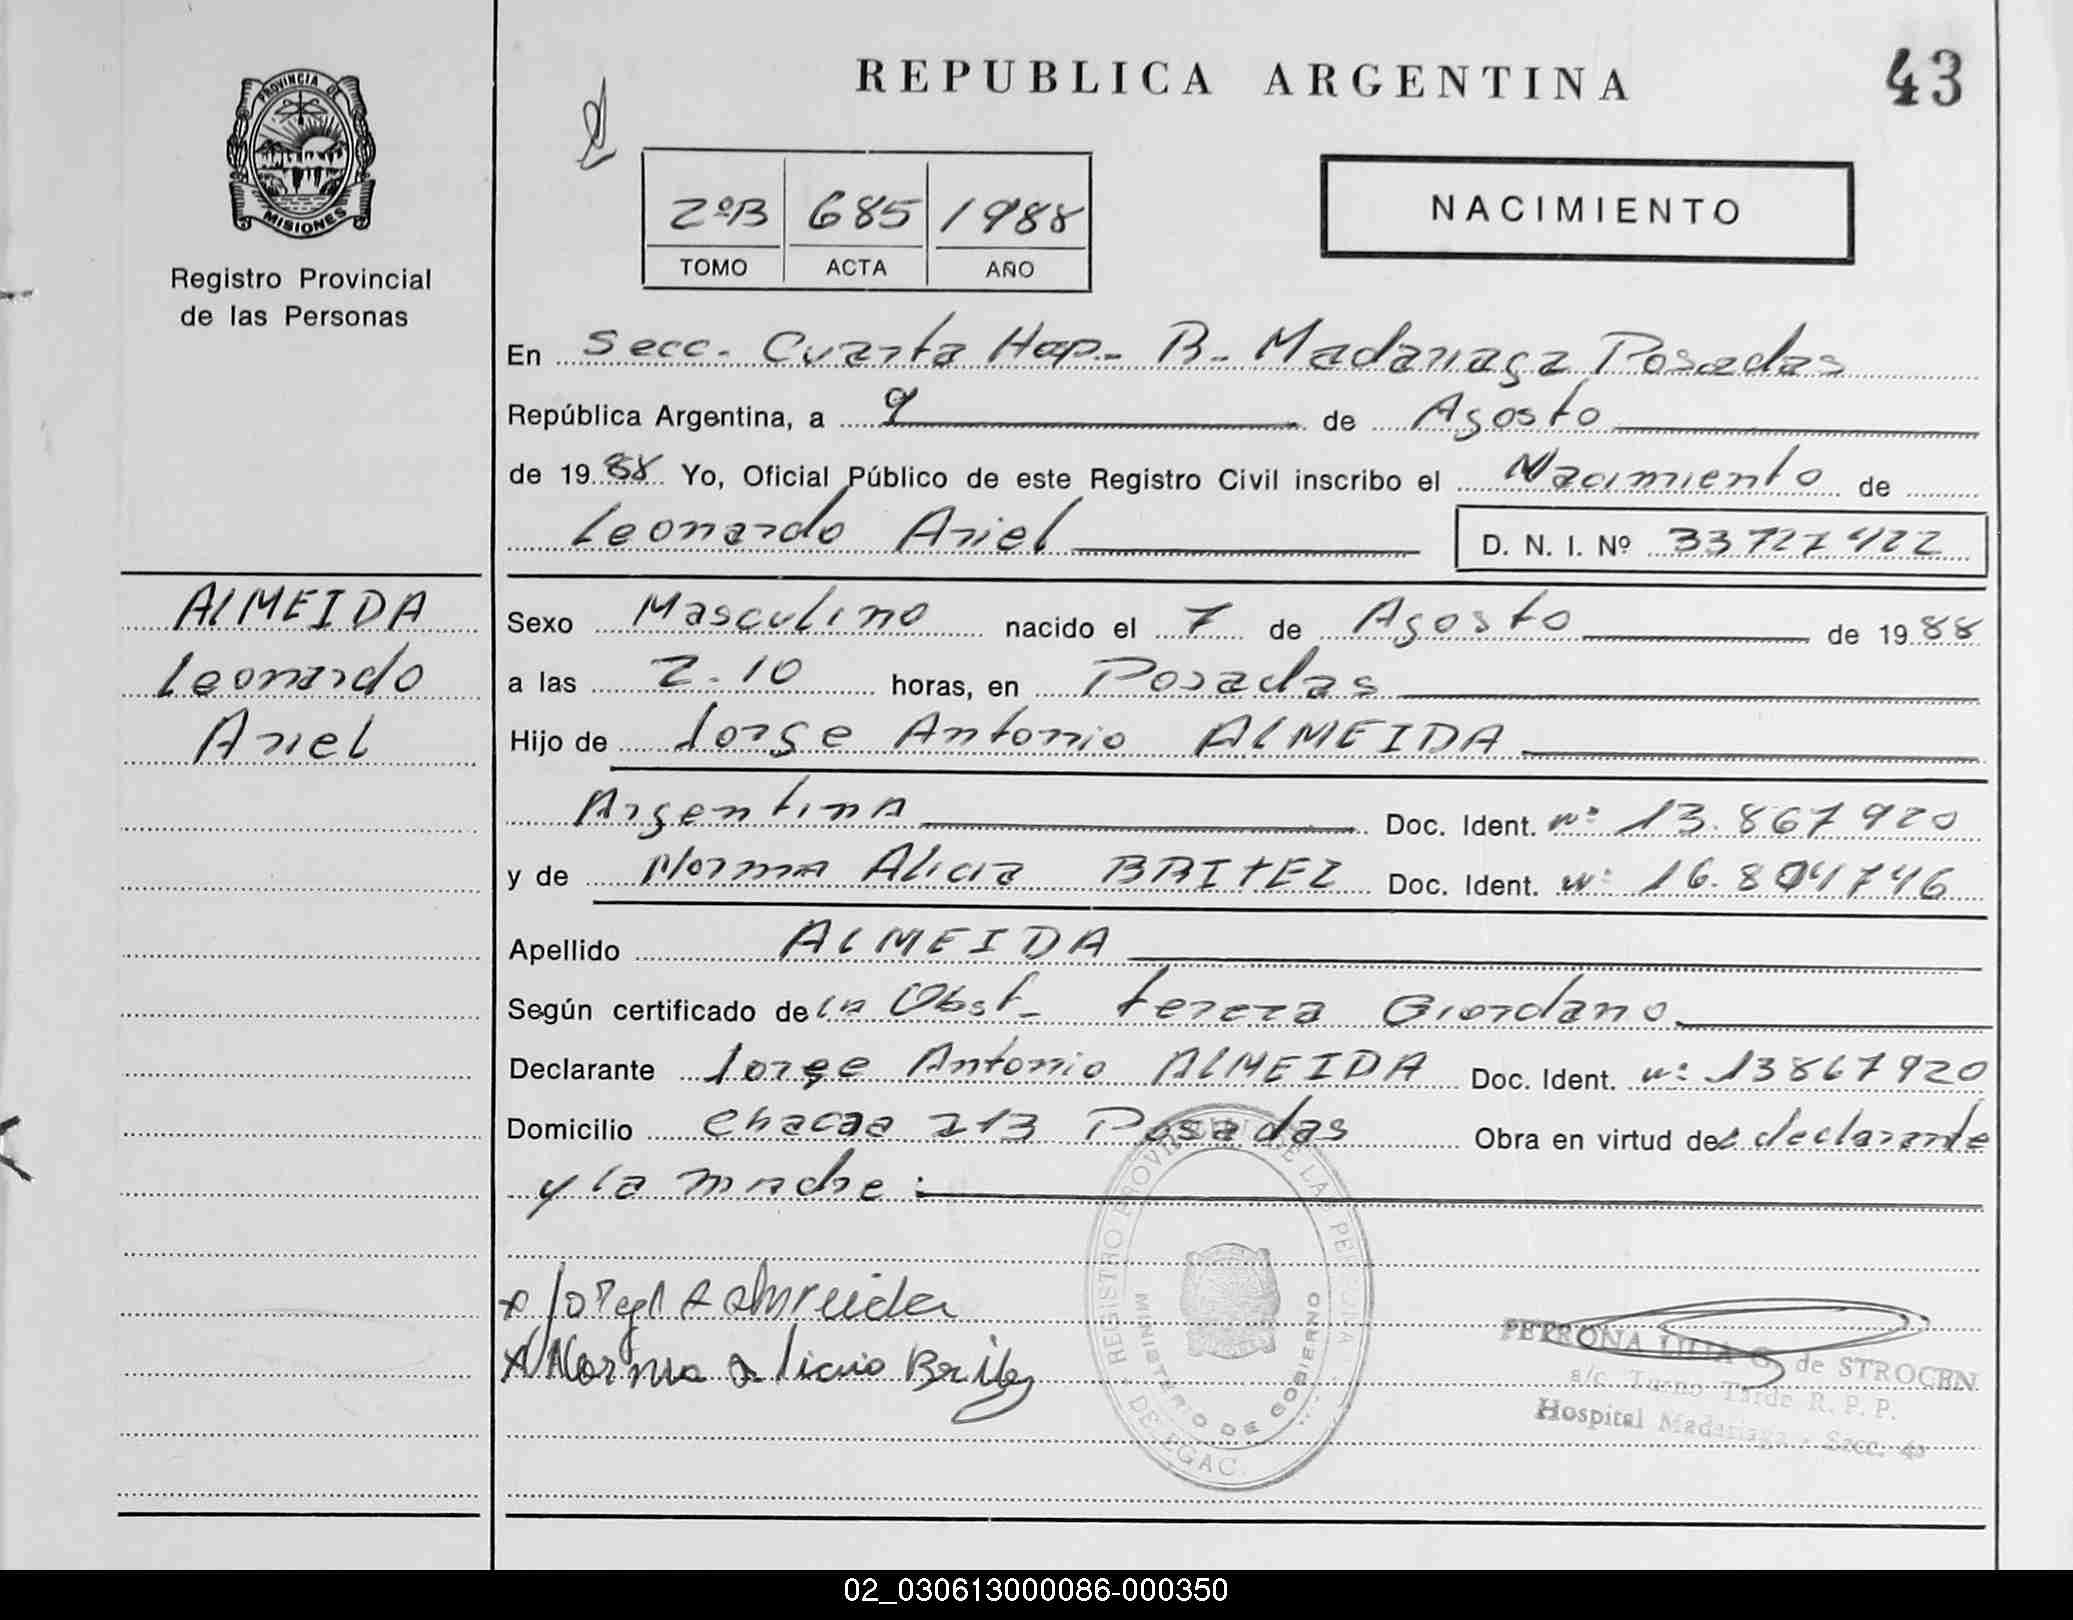 REPUBLICA ARGENTINA
43
PROVINCIA DE
MISIONES
Registro Provincial
de las Personas
2ºB 685 1988
TOMO ACTA AÑO
NACIMIENTO
En Secc. Cuarta Hop.- R. Madariaga Posadas
República Argentina, a 9 de Agosto
de 1988 Yo, Oficial Público de este Registro Civil inscribo el Nacimiento de
Leonardo Ariel
D. N. I. Nº 33727422
ALMEIDA
Leonardo
Ariel
Sexo Masculino nacido el 7 de Agosto de 1988
a las 2.10 horas, en Posadas
Hijo de Jorge Antonio ALMEIDA
Argentina Doc. Ident. nº 13.867920
y de Norma Alicia BRITEZ Doc. Ident. nº 16.8 4746
Apellido ALMEIDA
Según certificado de la Obst. Tereza Giordano
Declarante Jorge Antonio ALMEIDA Doc. Ident. nº 13867920
Domicilio Chacra 213 Posadas Obra en virtud del declarante
y la madre:
Norma alicia Britez
REGISTRO PROVINCIAL DE LAS PERSONAS
MINISTERIO DE GOBIERNO
DELEGAC.
PETRONA LILIA G. de STROCEN
a/c. Turno Tarde R. P. P.
Hospital Madariaga - Secc. 4a
02_030613000086-000350